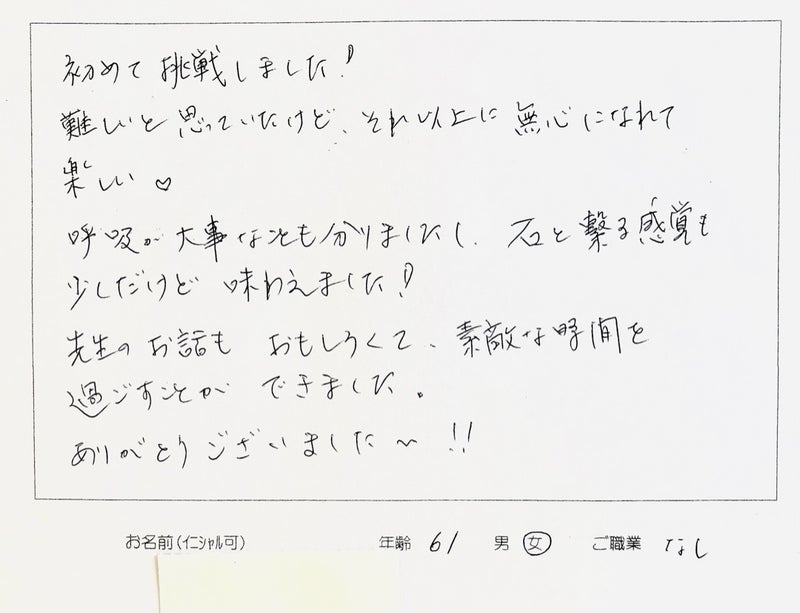 初めて挑戦しました!
難しいと思っていたけど、それ以上に無心になれて
楽しい♡
呼吸が大事なことも分りましたし、石と繋る感覚も
少しだけど味わえました!
先生のお話もおもしろくて、素敵な時間を
過ごすことができました。
ありがとうございました〜!!
お名前(イニシャル可) 年齢 61 男 女 ご職業 なし